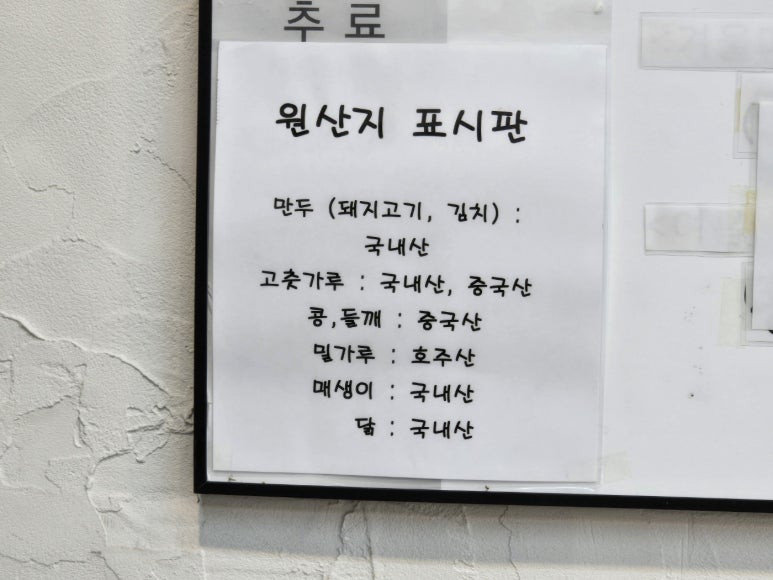 추 료
원산지 표시판
만두 (돼지고기, 김치) :
국내산
고춧가루 : 국내산, 중국산
콩,들깨 : 중국산
밀가루 : 호주산
매생이 : 국내산
닭 : 국내산